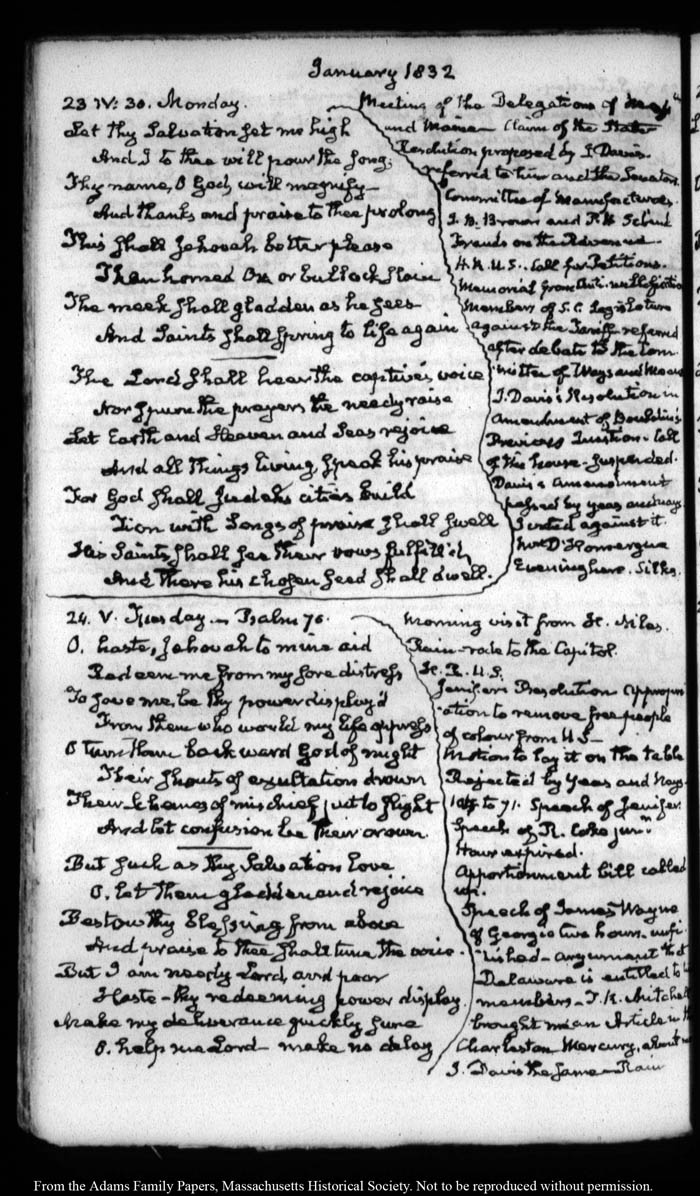 January 1832
23 IV: 30. Monday.
Let thy Salvation set me high
And I to thee will pour the song;
Thy name, O God, will magnify
And thanks and praise to thee prolong
This shall Jehovah better please
Than horned Ox or bullock slain
The meek shall gladden as he sees
And Saints shall spring to life again
The Lord shall hear the captive's voice
Nor spurn the prayers the needy raise
Let Earth and Heaven and Seas rejoice
And all things living, speak his praise
For God shall Judah's cities build
Zion with Songs of praise shall swell
His Saints shall see their vows fulfill'd
And there his chosen seed shall dwell.
Meeting of the Delegations of
and Maine Claim of the State
Resolution proposed by J. Davis
referred to him and the Senators.
Committee of Manufactures.
J. B. Brown and
Frauds on the Revenue.
H.R.U.S. Call for Petitions.
Memorial from Anti-nullification
Members of S.C. Legislature
against the Tariff referred
after debate to the Com
mittee of Ways and Means
J. Davis's Resolution in
amendment of Bouldin's
Previous Question. Call
of the house—suspended.
Davis's amendment
passed by yeas and nays
I voted against it.
Mr D'Homergue
Evening here. Silks.
24. V. Tuesday. Psalm 70.
O, haste, Jehovah to mine aid
Redeem me from my sore distress
To save me, be thy power display'd
From them who would my life oppress
O turn them backward God of might
Their shouts of exultation drown
Their Schemes of mischief put to flight
And let confusion be their crown.
But such as thy Salvation love
O. let them gladden and rejoice
Bestow thy blessing from above
And praise to thee shall tune the voice.
But I am needy Lord, and poor
Haste—thy redeeming power display
Make my deliverance quickly sure
O. help me Lord—make no delay
Morning visit from H. Niles.
Rain—rode to the Capitol.
H. R. U.S.
Jenifer's Resolution appropri
ation to remove free people
of colour from U.S—
Motion to lay it on the table
Rejected by Yeas and Nays
to 91. Speech of Jenifer
Speech of R. Coke junr.
Hour expired.
Apportionment bill called
up.
Speech of James Wayne
of Georgia two hours—unfi
nished—argument that
Delaware is entitled to
members—T. R. Mitchell
brought me an Article in the
Charleston Mercury, about
J. Davis the same—Rain
From the Adams Family Papers, Massachusetts Historical Society. Not to be reproduced without permission.